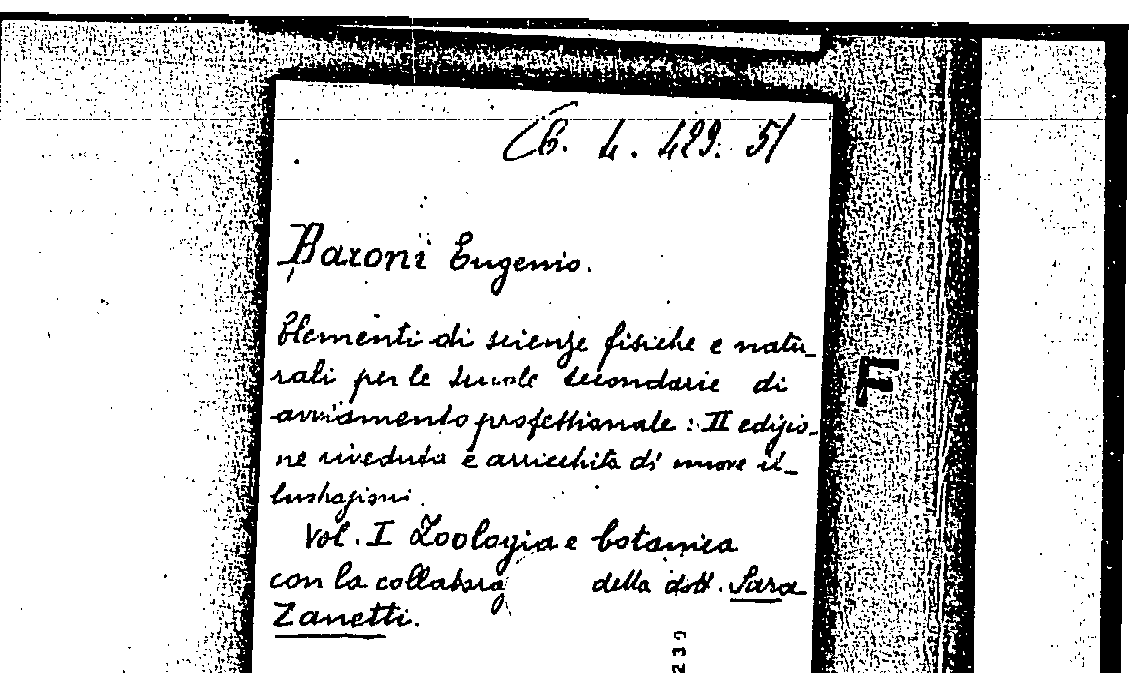 CB. 4. 429. 51
Baroni Eugenio.
Elementi di scienze fisiche e natu-
rali per le scuole secondarie di
avviamento professionale : II edizio-
ne riveduta e arricchita di nuove il-
lustrazioni.
Vol. I Zoologia e botanica
con la collabora della dott. Sara
Zanetti.
F
239